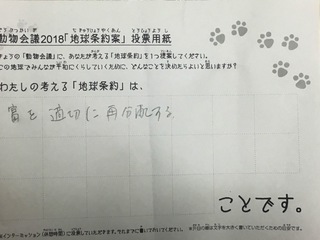 動物会議2018「地球条約案」投票用紙
きょうの「動物会議」に、あなたが考える「地球条約」を1つ提案してください。
この地球でみんなが平和にくらしていくために、どんなことを決めたらよいと思いますか?
わたしの考える「地球条約」は、
富を適切に再分配する
ことです。